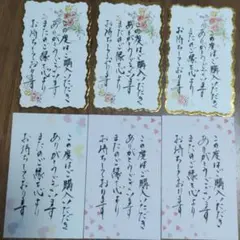 この度はご購入いただき
ありがとうございます
またのご縁を心より
お待ちしております
この度はご購入いただき
ありがとうございます
またのご縁を心より
お待ちしております
この度はご購入いただき
ありがとうございます
またのご縁を心より
お待ちしております
この度はご購入いただき
ありがとうございます
またのご縁を心より
お待ちしております
この度はご購入いただき
ありがとうございます
またのご縁を心より
お待ちしております
この度はご購入いただき
ありがとうございます
またのご縁を心より
お待ちしております